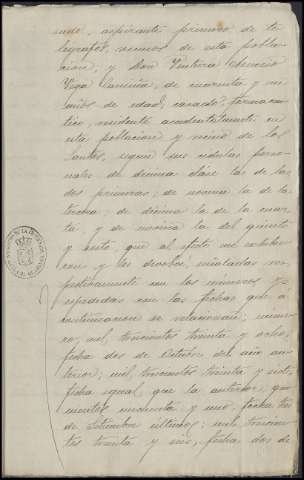 sado, aspirante primero de te
legrafos, vecinos de esta pobla
cion, y Don Ventura
Vega de cuarenta y nu
de edad, casado, farmaceu
tico, residente accidentalmente en
esta poblacion y vecino de los
Santos, segun sus cédulas perso
nales de décima clase las de
dos primeros; de novena la de la
tercera; de décima la de la cuar
ta, y de novena la del quinto
y sexto, que al efecto me exhibie
ron y les devolví, señaladas res
pectivamente con los números y
expedidas con las fechas que a
continuacion se relacionan: núme
ro, mil trescientos treinta y ocho,
fecha dos de Octubre del año an
terior; mil trescientos treinta y siete
fecha igual que la anterior; qui
nientos cincuenta y uno, fecha tres
de Setiembre último; mil trescien
tos treinta y seis, fecha dos de